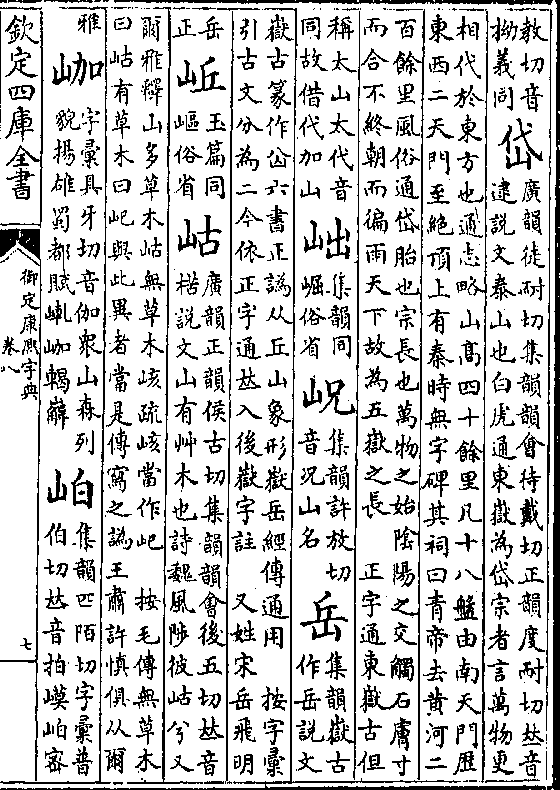 欽定四庫全書
御定康熙字典
卷八
七
教切音
拗義同
岱
廣韻徒耐切集韻韻會待戴切正韻度耐切𠀤音
逮說文泰山也白虎通東嶽為岱宗者言萬物更
相代於東方也通志略山髙四十餘里凡十八盤由南天門歷
東西二天門至絶頂上有秦時無字碑其祠曰青帝去黄河二
百餘里風俗通岱胎也宗長也萬物之始陰陽之交觸石膚寸
而合不終朝而徧雨天下故為五嶽之長　正字通東嶽古但
稱太山太代音
同故借代加山
集韻同
崛俗省
岲
集韻許放切
音况山名
岳
集韻嶽古
作岳說文
嶽古篆作六書正譌从丘山象形嶽岳經傳通用　按字彙
引古文分為二今依正字通𠀤入後嶽字註　又姓宋岳飛明
岳
正
岴
玉篇同
嶇俗省
岵
廣韻正韻侯古切集韻韻會後五切𠀤音
楛說文山有艸木也詩魏風陟彼岵兮又
爾雅釋山多草木岵無草木峐疏峐當作屺　按毛傳無草木
曰岵有草木曰屺與此異者當是傳寫之譌王肅許慎俱从爾
雅
字彙具牙切音伽衆山森列
貌揚雄蜀都賦
岶
集韻匹陌切字彙普
伯切𠀤音拍嶫岶密